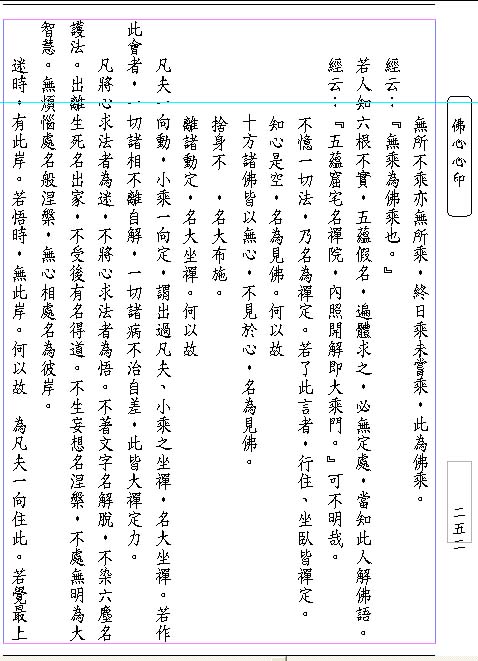 佛心心印
無所不乘亦無所乘，終日乘未嘗乘，此為佛乘。
經云：『無乘為佛乘也。』
若人知六根不實，五蘊假名，遍體求之，必無定處，當知此人解佛語。
經云：『五蘊窟宅名禪院，內照開解即大乘門。』可不明哉。
不憶一切法，乃名為禪定。若了此言者，行住、坐臥皆禪定。
知心是空，名為見佛。何以故
十方諸佛皆以無心，不見於心，名為見佛。
捨身不　，名大布施。
離諸動定，名大坐禪。何以故
凡夫一向動，小乘一向定，謂出過凡夫、小乘之坐禪，名大坐禪。若作
此會者，一切諸相不離自解，一切諸病不治自差，此皆大禪定力。
凡將心求法者為迷，不將心求法者為悟。不著文字名解脫，不染六塵名
護法。出離生死名出家，不受後有名得道。不生妄想名涅槃，不處無明為大
智慧。無煩惱處名般涅槃，無心相處名為彼岸。
迷時，有此岸。若悟時，無此岸。何以故　為凡夫一向住此。若覺最上
二五二